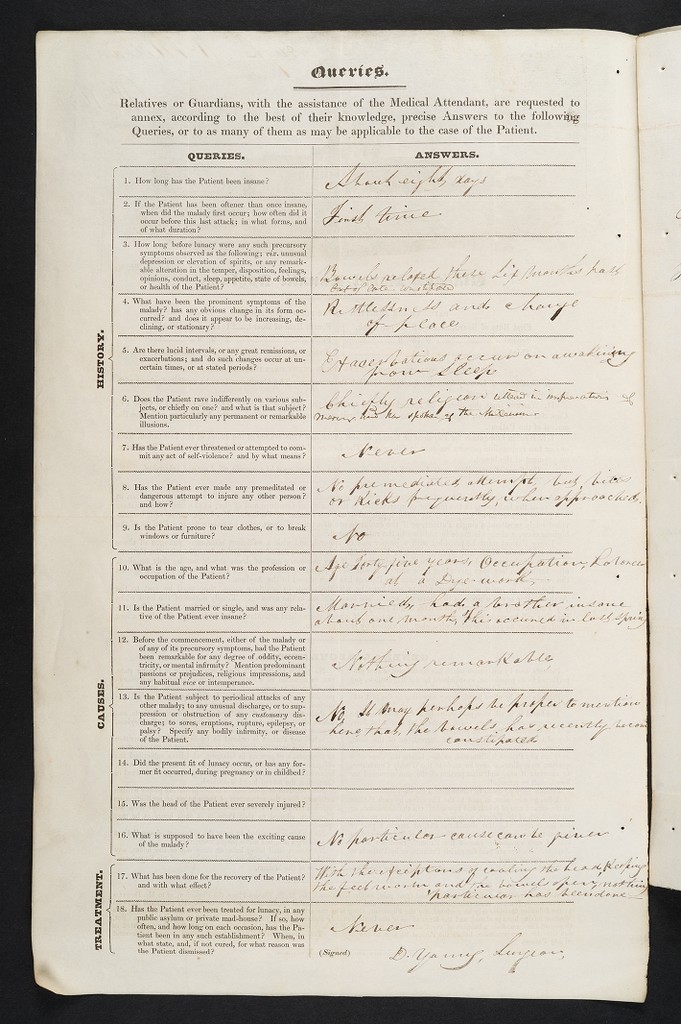 Queries.
Relatives or Guardians, with the assistance of the Medical Attendant, are requested to
annex, according to the best of their knowledge, precise Answers to the following
Queries, or to as many of them as may be applicable to the case of the Patient.
QUERIES.
ANSWERS.
HISTORY.
1. How long has the Patient been insane?
About eight days
2. If the Patient has been oftener than once insane,
when did the malady first occur; how often did it
occur before this last attack; in what forms, and
of what duration?
First time
3. How long before lunacy were any such precursory
symptoms observed as the following; viz. unusual
depression or elevation of spirits, or any remark-
able alteration in the temper, disposition, feelings,
opinions, conduct, sleep, appetite, state of bowels,
or health of the Patient?
Bowels relaxed these Six months past
but of late constipated
4. What have been the prominent symptoms of the
malady? has any obvious change in its form oc-
curred? and does it appear to be increasing, de-
clining, or stationary?
Restlessness and change
of place
5. Are there lucid intervals, or any great remissions, or
exacerbations; and do such changes occur at un-
certain times, or at stated periods?
Exacerbations occur on awakening
from Sleep
6. Does the Patient rave indifferently on various sub-
jects, or chiefly on one? and what is that subject?
Mention particularly any permanent or remarkable
illusions.
Chiefly religion
of the
7. Has the Patient ever threatened or attempted to com-
mit any act of self-violence? and by what means?
Never
8. Has the Patient ever made any premeditated or
dangerous attempt to injure any other person?
and how?
No premediated attempt, but bites
or Kicks frequently, when approached.
9. Is the Patient prone to tear clothes, or to break
windows or furniture?
No
CAUSES.
10. What is the age, and what was the profession or
occupation of the Patient?
Age forty-five years, Occupation, Laborer
at a Dye-work
11. Is the Patient married or single, and was any rela-
tive of the Patient ever insane?
Married, had a brother insane
about one month, this occurred in last Spring
12. Before the commencement, either of the malady or
of any of its precursory symptoms, had the Patient
been remarkable for any degree of oddity, eccen-
tricity, or mental infirmity? Mention predominant
passions or prejudices, religious impressions, and
any habitual vice or intemperance.
Nothing remarkable,
13. Is the Patient subject to periodical attacks of any
other malady; to any unusual discharge, or to sup-
pression or obstruction of any customary dis-
charge; to sores, eruptions, rupture, epilepsy, or
palsy? Specify any bodily infirmity, or disease
of the Patient.
No, It may perhaps be proper to mention
here that, the bowels, has recently become
constipated
14. Did the present fit of lunacy occur, or has any for-
mer fit occurred, during pregnancy or in childbed?
15. Was the head of the Patient ever severely injured?
16. What is supposed to have been the exciting cause
of the malady?
No particular cause can be given
TREATMENT.
17. What has been done for the recovery of the Patient?
and with what effect?
With the exceptions of cooling the head, Keeping
the feet warm and the bowels open, nothing
particular has been done
18. Has the Patient ever been treated for lunacy, in any
public asylum or private mad-house? If so, how
often, and how long on each occasion, has the Pa-
tient been in any such establishment? When, in
what state, and, if not cured, for what reason was
the Patient dismissed?
Never
(Signed)
D. Young, Surgeon,